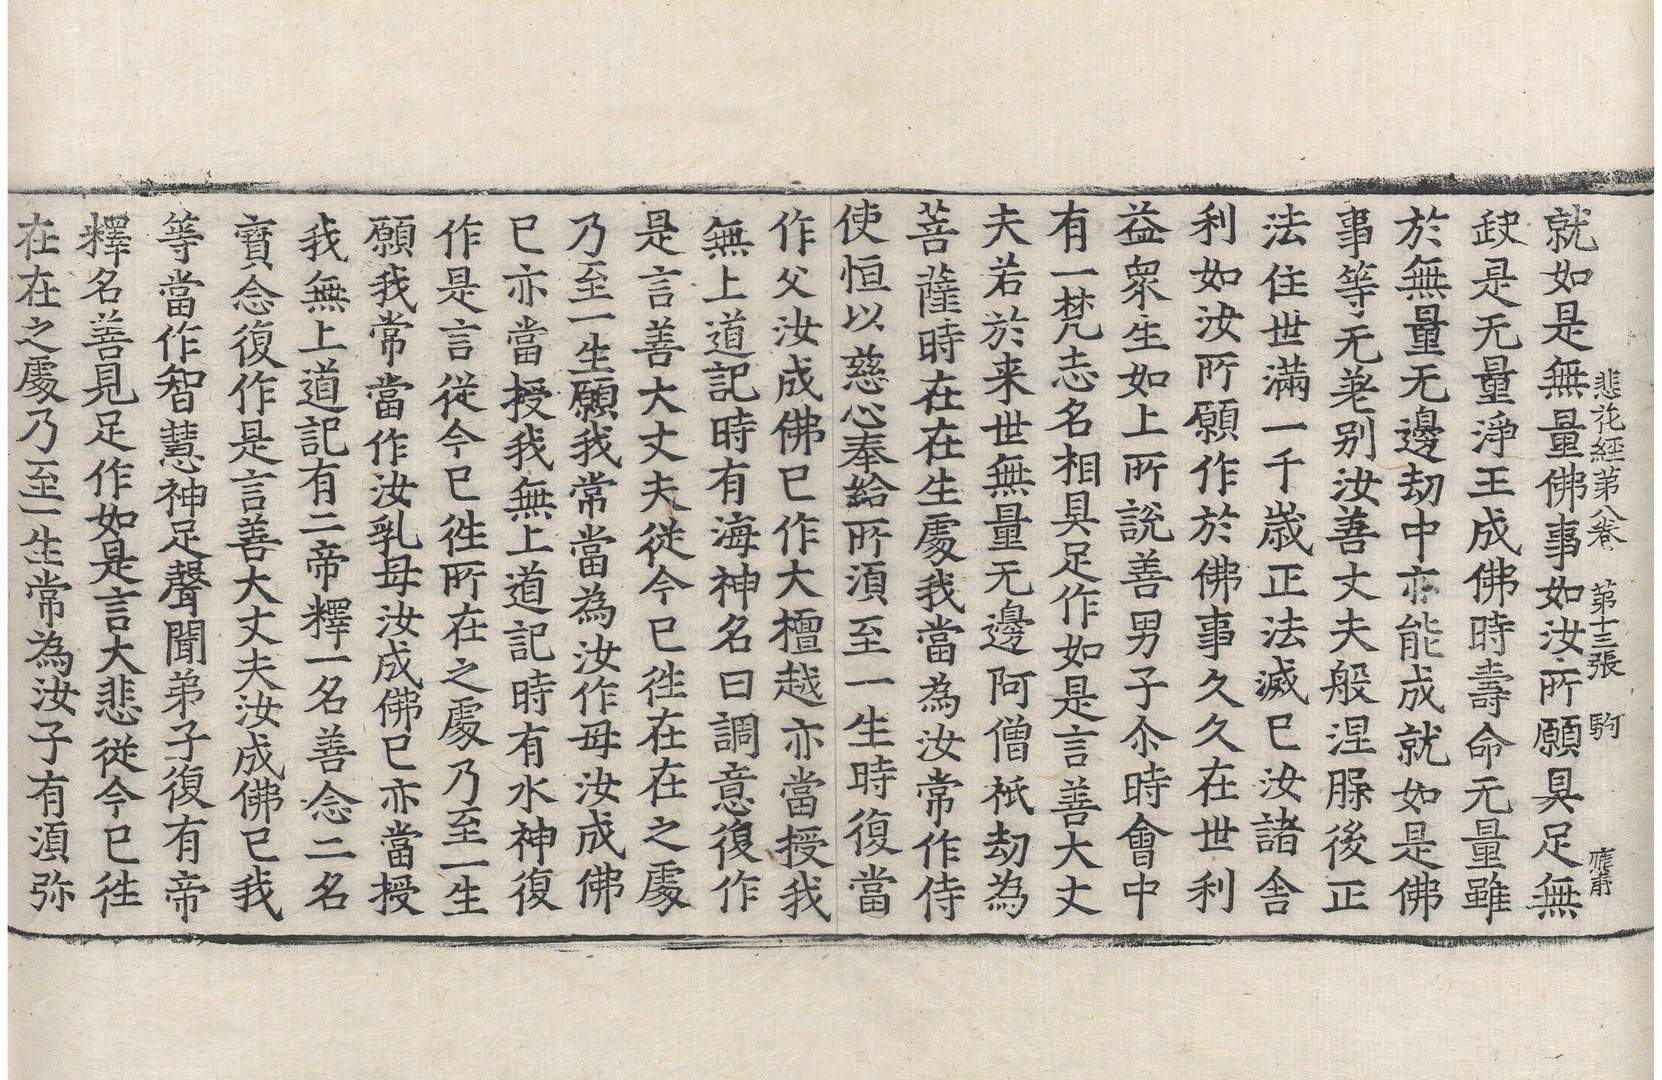 悲花經第八卷 第十三張 駒
就如是無量佛事如汝所願具足無
缺是无量淨王成佛時壽命无量雖
於無量无邊劫中亦能成就如是佛
事等无差别汝善丈夫般涅槃後正
法住世滿一千歲正法滅已汝諸舍
利如汝所願作於佛事久久在世利
益衆生如上所說善男子尒時會中
有一梵志名相具足作如是言善大丈
夫若於来世無量无邊阿僧祇劫為
菩薩時在在生處我當為汝常作侍
使恒以慈心奉給所須至一生時復當
作父汝成佛已作大檀越亦當授我
無上道記時有海神名曰調意復作
是言善大丈夫從今已徃在在之處
乃至一生願我常當為汝作母汝成佛
已亦當授我無上道記時有水神復
作是言從今已徃所在之處乃至一生
願我常當作汝乳母汝成佛已亦當授
我無上道記有二帝釋一名善念二名
寶念復作是言善大丈夫汝成佛已我
等當作智慧神足聲聞弟子復有帝
釋名善見足作如是言大悲從今已徃
在在之處乃至一生常為汝子有須弥